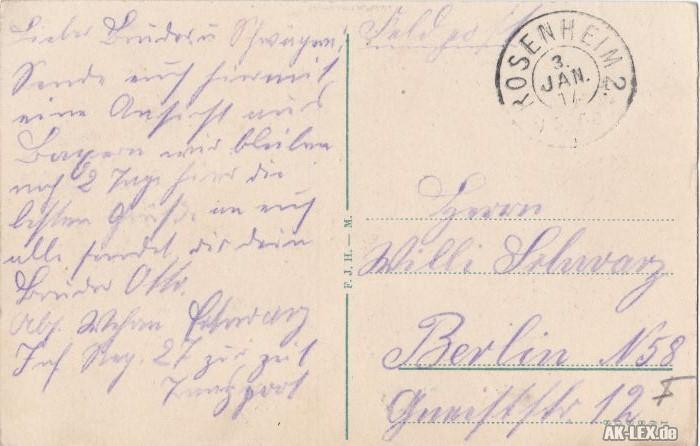 Lieber Bruder u Schwagerin,
Sende euch hiermit
eine Ansicht aus
Bayern wir bleiben
noch 2 Tage hier die
besten Grüße an euch
alle sendet dir dein
Bruder Otto
Abs. Schwarz
Inf Reg. 27 zur zeit
Transport
F. J. H. — M.
Feldpost
ROSENHEIM 2.
3.
JAN.
Herrn
Willi Schwarz
Berlin N58
Gneiststr 12 I
AK-LEX.de